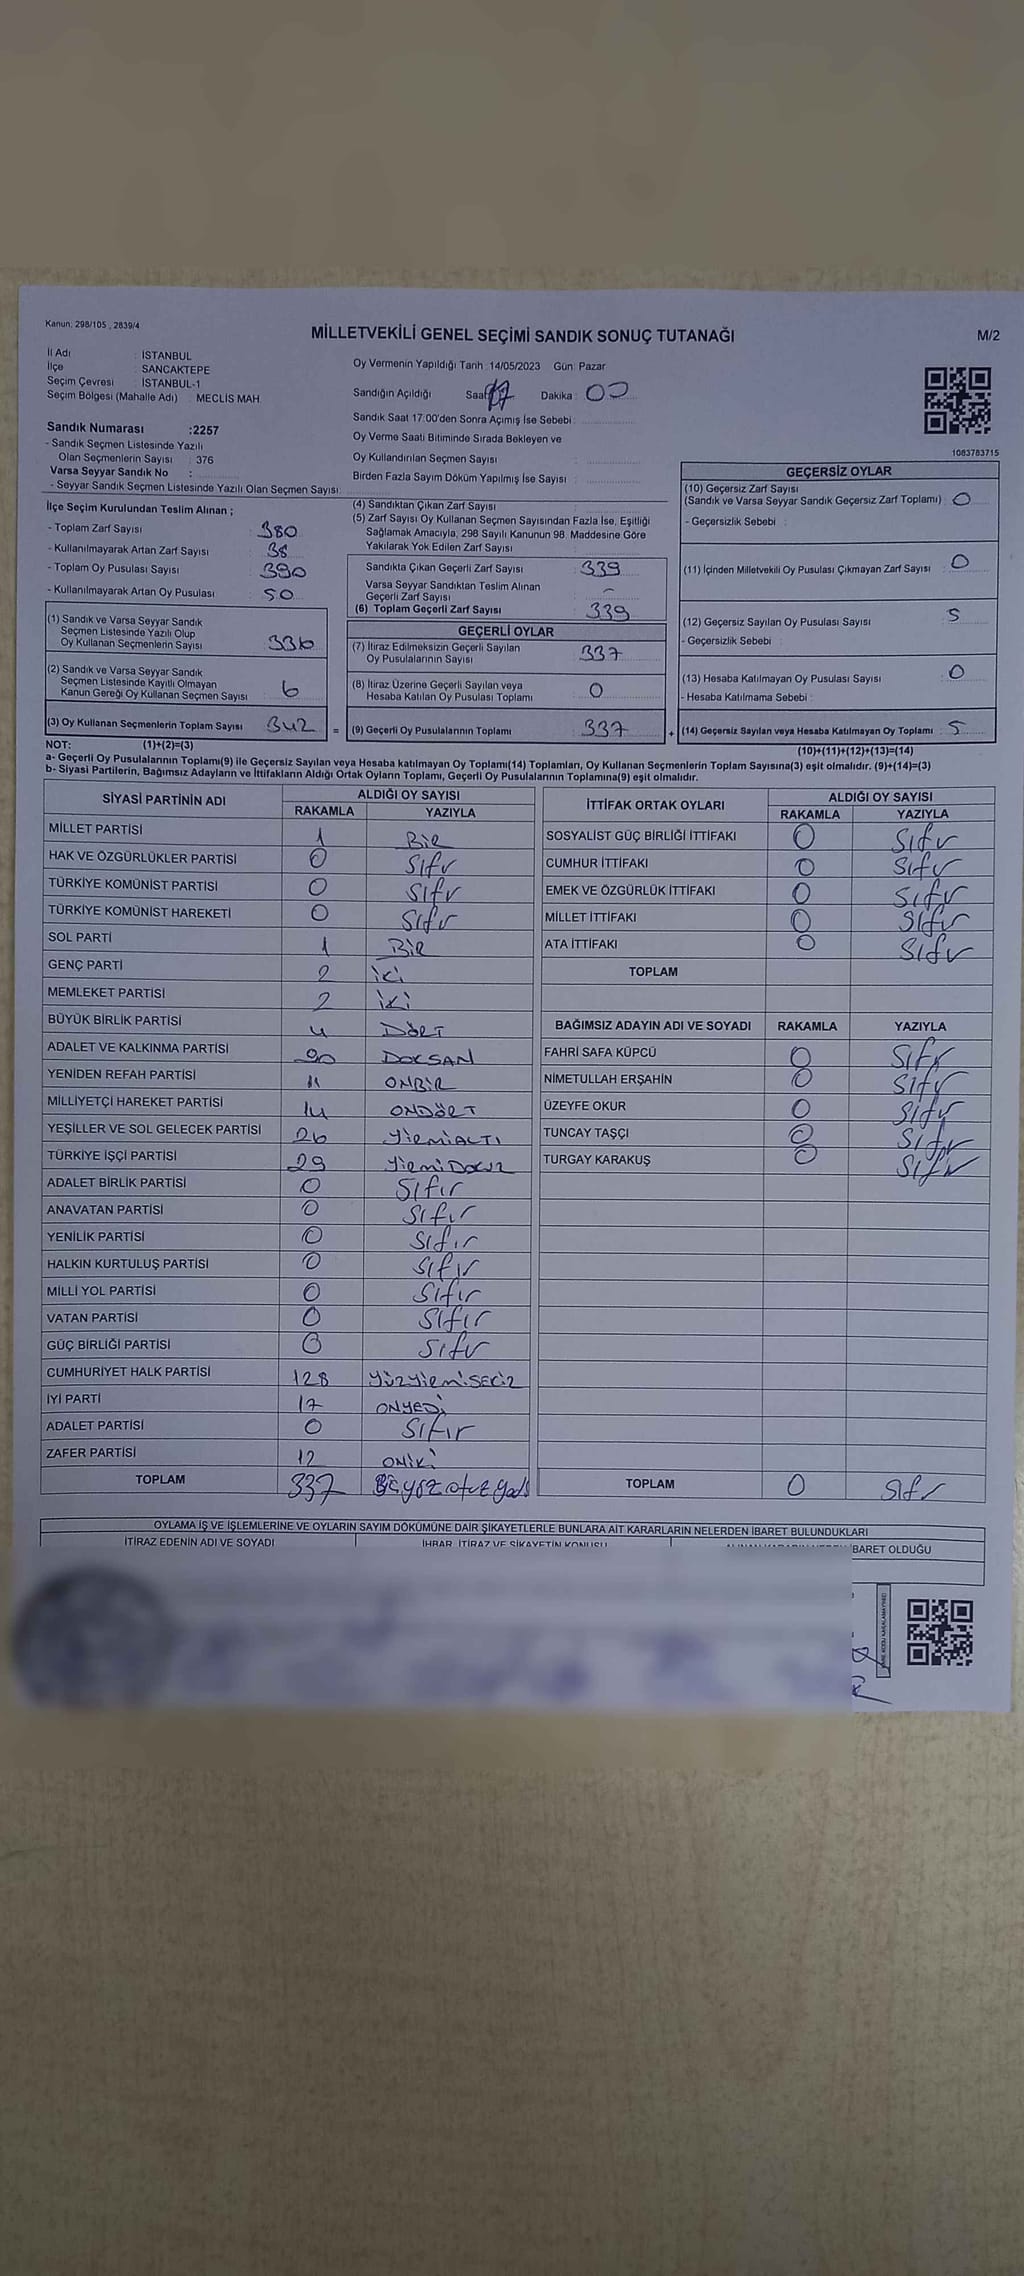 Kanun, 298/105 , 2839/4
MİLLETVEKİLİ GENEL SEÇİMİ SANDIK SONUÇ TUTANAĞI
M/2
İl Adı : İSTANBUL
İlçe : SANCAKTEPE
Seçim Çevresi : İSTANBUL-1
Seçim Bölgesi (Mahalle Adı) : MECLİS MAH.
Oy Vermenin Yapıldığı Tarih :14/05/2023 Gün: Pazar
Sandığın Açıldığı Saat 17 Dakika : 00
Sandık Saat 17:00'den Sonra Açımış İse Sebebi :
Oy Verme Saati Bitiminde Sırada Bekleyen ve
Oy Kullandırılan Seçmen Sayısı :
Birden Fazla Sayım Döküm Yapılmış İse Sayısı :
1083783715
Sandık Numarası :2257
- Sandık Seçmen Listesinde Yazılı
Olan Seçmenlerin Sayısı : 376
Varsa Seyyar Sandık No :
- Seyyar Sandık Seçmen Listesinde Yazılı Olan Seçmen Sayısı:
İlçe Seçim Kurulundan Teslim Alınan ;
- Toplam Zarf Sayısı : 380
- Kullanılmayarak Artan Zarf Sayısı : 38
- Toplam Oy Pusulası Sayısı : 390
- Kullanılmayarak Artan Oy Pusulası : 50
(1) Sandık ve Varsa Seyyar Sandık
Seçmen Listesinde Yazılı Olup
Oy Kullanan Seçmenlerin Sayısı : 336
(2) Sandık ve Varsa Seyyar Sandık
Seçmen Listesinde Kayıtlı Olmayan
Kanun Gereği Oy Kullanan Seçmen Sayısı : 6
(3) Oy Kullanan Seçmenlerin Toplam Sayısı : 342
(4) Sandıktan Çıkan Zarf Sayısı :
(5) Zarf Sayısı Oy Kullanan Seçmen Sayısından Fazla İse, Eşitliği
Sağlamak Amacıyla, 298 Sayılı Kanunun 98. Maddesine Göre
Yakılarak Yok Edilen Zarf Sayısı :
Sandıkta Çıkan Geçerli Zarf Sayısı : 339
Varsa Seyyar Sandıktan Teslim Alınan
Geçerli Zarf Sayısı : -
(6) Toplam Geçerli Zarf Sayısı : 339
GEÇERLİ OYLAR
(7) İtiraz Edilmeksizin Geçerli Sayılan
Oy Pusulalarının Sayısı : 337
(8) İtiraz Üzerine Geçerli Sayılan veya
Hesaba Katılan Oy Pusulası Toplamı : 0
= (9) Geçerli Oy Pusulalarının Toplamı : 337
GEÇERSİZ OYLAR
(10) Geçersiz Zarf Sayısı
(Sandık ve Varsa Seyyar Sandık Geçersiz Zarf Toplamı) : 0
- Geçersizlik Sebebi :
(11) İçinden Milletvekili Oy Pusulası Çıkmayan Zarf Sayısı : 0
(12) Geçersiz Sayılan Oy Pusulası Sayısı : 5
- Geçersizlik Sebebi :
(13) Hesaba Katılmayan Oy Pusulası Sayısı : 0
- Hesaba Katılmama Sebebi :
+ (14) Geçersiz Sayılan veya Hesaba Katılmayan Oy Toplamı : 5
NOT: (1)+(2)=(3)
(10)+(11)+(12)+(13)=(14)
a- Geçerli Oy Pusulalarının Toplamı(9) ile Geçersiz Sayılan veya Hesaba katılmayan Oy Toplamı(14) Toplamları, Oy Kullanan Seçmenlerin Toplam Sayısına(3) eşit olmalıdır. (9)+(14)=(3)
b- Siyasi Partilerin, Bağımsız Adayların ve İttifakların Aldığı Ortak Oyların Toplamı, Geçerli Oy Pusulalarının Toplamına(9) eşit olmalıdır.
SİYASİ PARTİNİN ADI
ALDIĞI OY SAYISI
RAKAMLA YAZIYLA
MİLLET PARTİSİ 1 BİR
HAK VE ÖZGÜRLÜKLER PARTİSİ 0 Sıfır
TÜRKİYE KOMÜNİST PARTİSİ 0 Sıfır
TÜRKİYE KOMÜNİST HAREKETİ 0 Sıfır
SOL PARTİ 1 BİR
GENÇ PARTİ 2 İKİ
MEMLEKET PARTİSİ 2 İKİ
BÜYÜK BİRLİK PARTİSİ 4 DÖRT
ADALET VE KALKINMA PARTİSİ 90 DOKSAN
YENİDEN REFAH PARTİSİ 11 ONBİR
MİLLİYETÇİ HAREKET PARTİSİ 14 ONDÖRT
YEŞİLLER VE SOL GELECEK PARTİSİ 26 YİRMİALTI
TÜRKİYE İŞÇİ PARTİSİ 29 YİRMİDOKUZ
ADALET BİRLİK PARTİSİ 0 Sıfır
ANAVATAN PARTİSİ 0 Sıfır
YENİLİK PARTİSİ 0 Sıfır
HALKIN KURTULUŞ PARTİSİ 0 Sıfır
MİLLİ YOL PARTİSİ 0 Sıfır
VATAN PARTİSİ 0 Sıfır
GÜÇ BİRLİĞİ PARTİSİ 0 Sıfır
CUMHURİYET HALK PARTİSİ 128 YÜZYİRMİSEKİZ
İYİ PARTİ 17 ONYEDİ
ADALET PARTİSİ 0 Sıfır
ZAFER PARTİSİ 12 ONİKİ
TOPLAM 337
İTTİFAK ORTAK OYLARI
ALDIĞI OY SAYISI
RAKAMLA YAZIYLA
SOSYALİST GÜÇ BİRLİĞİ İTTİFAKI 0 Sıfır
CUMHUR İTTİFAKI 0 Sıfır
EMEK VE ÖZGÜRLÜK İTTİFAKI 0 Sıfır
MİLLET İTTİFAKI 0 Sıfır
ATA İTTİFAKI 0 Sıfır
TOPLAM
BAĞIMSIZ ADAYIN ADI VE SOYADI RAKAMLA YAZIYLA
FAHRİ SAFA KÜPCÜ 0 Sıfır
NİMETULLAH ERŞAHİN 0 Sıfır
ÜZEYFE OKUR 0 Sıfır
TUNCAY TAŞÇI 0 Sıfır
TURGAY KARAKUŞ 0 Sıfır
TOPLAM 0 Sıfır
OYLAMA İŞ VE İŞLEMLERİNE VE OYLARIN SAYIM DÖKÜMÜNE DAİR ŞİKAYETLERLE BUNLARA AİT KARARLARIN NELERDEN İBARET BULUNDUKLARI
İTİRAZ EDENİN ADI VE SOYADI
İHBAR, İTİRAZ VE ŞİKAYETİN KONUSU
İBARET OLDUĞU